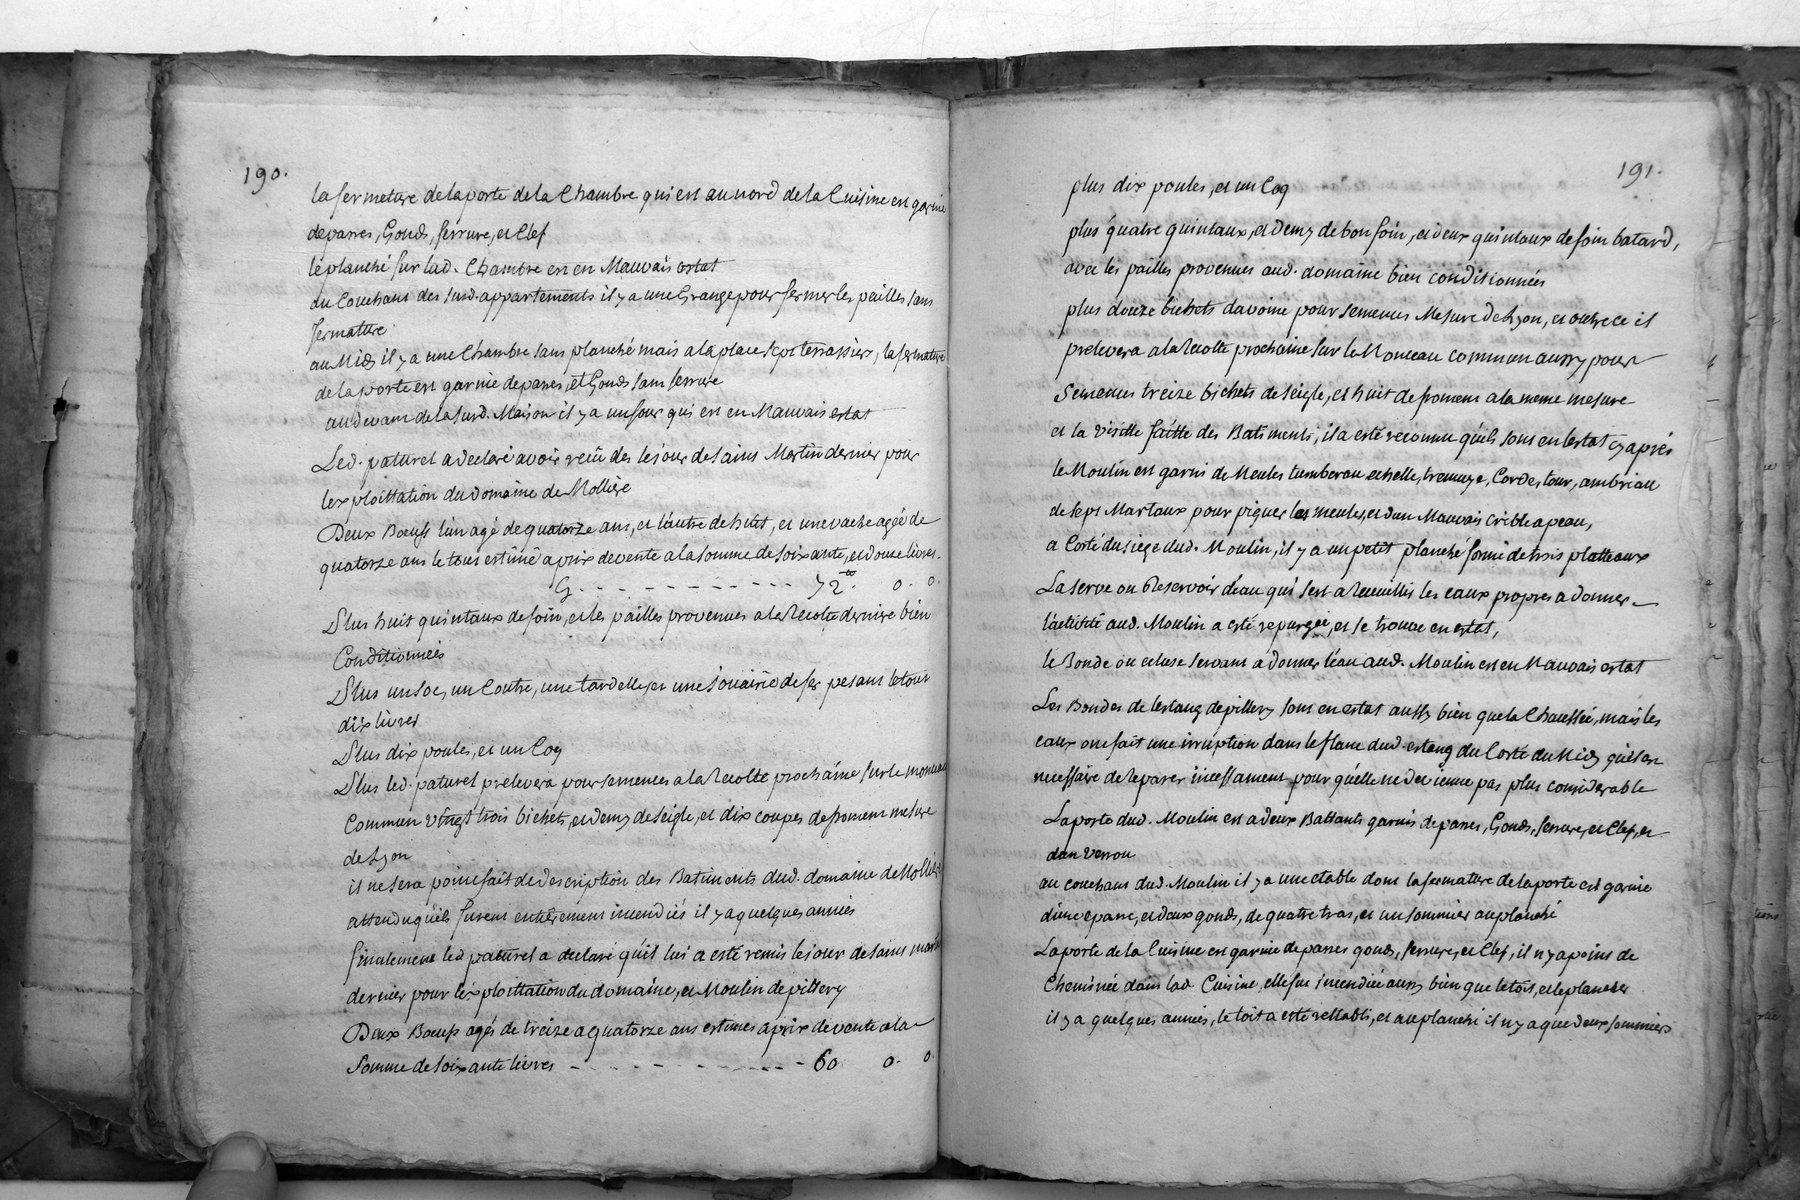 190.
la fermeture de la porte de la Chambre qui est au nord de la Cuisine est garnie
depares, Gonds, serrure, et Clef
le planché sur lad. Chambre est en Mauvais estat
au Couchant des susd. appartements il y a une Grange pour fermer les pailles sans
fermature
au Midy il y a une Chambre sans planché mais a la place sept terrassiers, la fermature
de la porte est garnie depares, et Gonds sans serrure
au devant de la susd. Maison il y a un four qui est en Mauvais estat
Led. paturel a declaré avoir reçû des le jour de saint Martin dernier pour
lexploittation du domaine de Mollieze
Deux Bœufs l'un agé de quatorze ans, et l'autre de huit, et une vache agée de
quatorze ans le tout estimé a prix de vente a la somme de soixante, et douze livres.
Cy - - - - - - - - 72.tt 0. 0.
Plus huit quintaux de foin, et les pailles provenues a la Recolte derniere bien
Conditionnées
Plus un soc, un Coutre, une tardelle, et une souairie de fer pesant le tout
dix livres
Plus dix poules, et un Coq
Plus led. paturel prelevera pour semences a la Recolte prochaine sur le monceau
Commun vingt trois bichets, et demy de seigle, et dix coupes de froment mesure
de Lyon
il ne sera point fait de description des Batiments dud. domaine de Mollieze
attendu quéils furent entièrement incendiés il y a quelques années
finalement led paturel a declaré qu'il lui a esté remis le jour de saint martin
dernier pour lexploittation du domaine, et Moulin de pillery
Deux Bœufs agés de treize a quatorze ans estimes a prix de vente a la
somme de soixante livres - - - - - - - - 60 0. 0.
191.
plus dix poules, et un Coq
plus quatre quintaux, et demy de bon foin, et deux quintaux de foin batard,
avec les pailles provenues aud. domaine bien conditionnées
plus douze bichets davoine pour semences Mesure de Lyon, et outre ce il
prelevera a la Recolte prochaine sur le Monceau commun aussy pour
semences treize bichets de seigle, et huit de froment a la meme mesure
et la visitte faitte des Batiments, il a esté reconnu quéils sont en lestat cy aprés
le Moulin est garni de Meules tumbereau echelle, tremuye, Corde, tour, ambriau
de sept Martaux pour piquer les meules, et d'un Mauvais crible a peau,
a Corté du siege dud. Moulin, il y a un petit planché formé de trois platteaux
La serve ou Reservoir d'eau qui sert a recueillir les eaux propres a donner
l'activité aud. Moulin a esté repurgée, et se trouve en estat,
le Bonde ou ecluse servant a donner l'eau aud. Moulin est en Mauvais estat
Les Bondes de lestang de pillery sont en estat aussy bien que la Chaussée, mais les
eaux ont fait une irruption dans le flanc dud. estang du Corté du Midy quil est
necessaire de reparer incessament pour quélle ne devienne pas plus considerable
La porte dud. Moulin est a deux Battants garnis depares, Gonds, serrure, et Clef, et
d'un verrou
au couchant dud. Moulin il y a une etable dont la fermature de la porte est garnie
d'une epare, et deux gonds, de quatre tras, et un sommier au planché
La porte de la Cuisine est garnie depares gonds, serrure, et Clef, il n'y a point de
Cheminée dans lad Cuisine, elle fut incendiée aussy bien que le toit, et le plancher
il y a quelques années, le toit a esté rettabli, et au planché il n'y a que deux sommiers